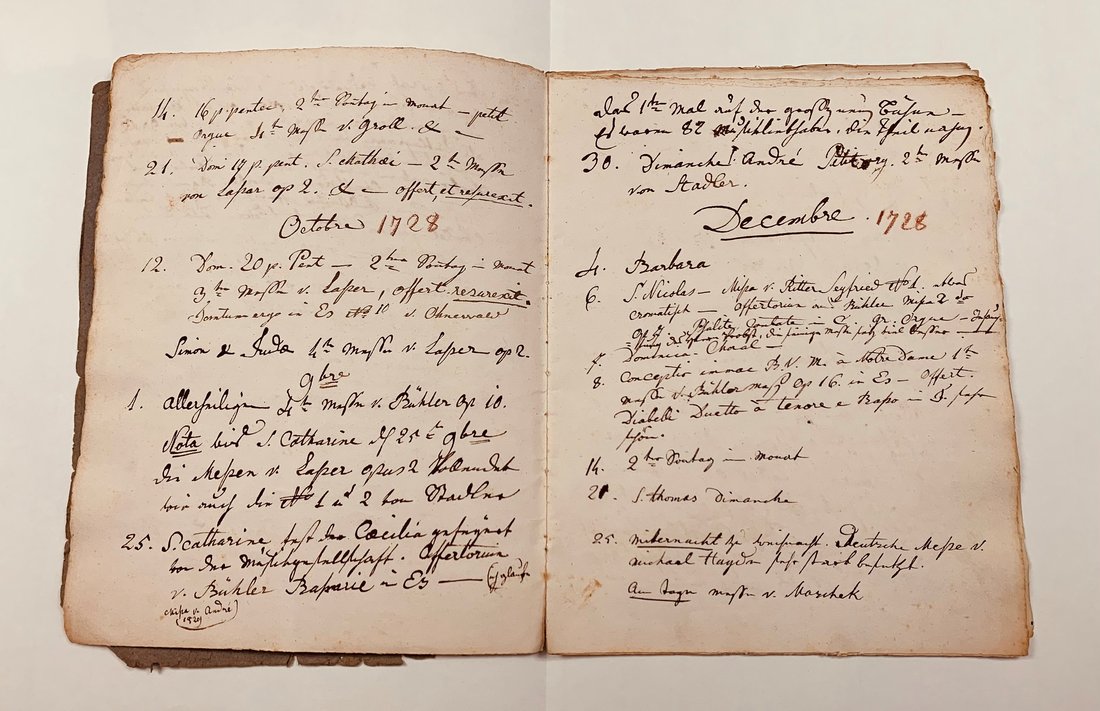 14. 16 p pentec. 2ter Sontag in monat — petit
orgue 4te Messe v. Groll. & —
21. Dom 17 p. pent. S. Mathäi — 2te Messe
von Lasser op 2. & — offert, et resurexit.
Octobre 1728
12. Dom. 20 p. Pent — 2ter Sontag in monat
3te Messe v. Lasser, offert. resurexit.
in Es No 10 v. Ohnewald
Simon & Judä 4te Messe v. Lasser op 2.
9bre
1. Allerheiligen 4te Messe v. Bühler op 10.
Nota bis S. Catharine d 25te 9bre
die Messen v. Lasser opus 2 vollendet
wie auch die No 1 u 2 von Stadler
25. S. Catharine fest der Cæcilia gefeyret
von der Musikgesellschaft. Offertorium
v. Bühler Basarie in Es —
Missa v. André
1829
das 1te Mal auf der
Es waren 82 Musikliebhaber. Ein Theil
30. Dimanche André Petit org. 2te Messe
von Stadler.
Decembre. 1728
4. Barbara
6. S. Nicolas — Missa v. Ritter Seyfried No 1.
— Offertorium v. Bühler Missa 2 do
op in C. Gr. Orgue —
Dominica Choral —
8. Conceptio immac B. V. M. à Notre Dame 1te
Messe v. Bühler Op 16. in Es — Offert.
Diabelli Duetto à tenore e Basso in sehr
schön.
14. 2ter Sontag in monat
21. S. Thomas Dimanche
25. Mitternacht Deutsche Messe v.
Michael Haydn sehr stark besetzt.
Am tage Messe v. Maschek